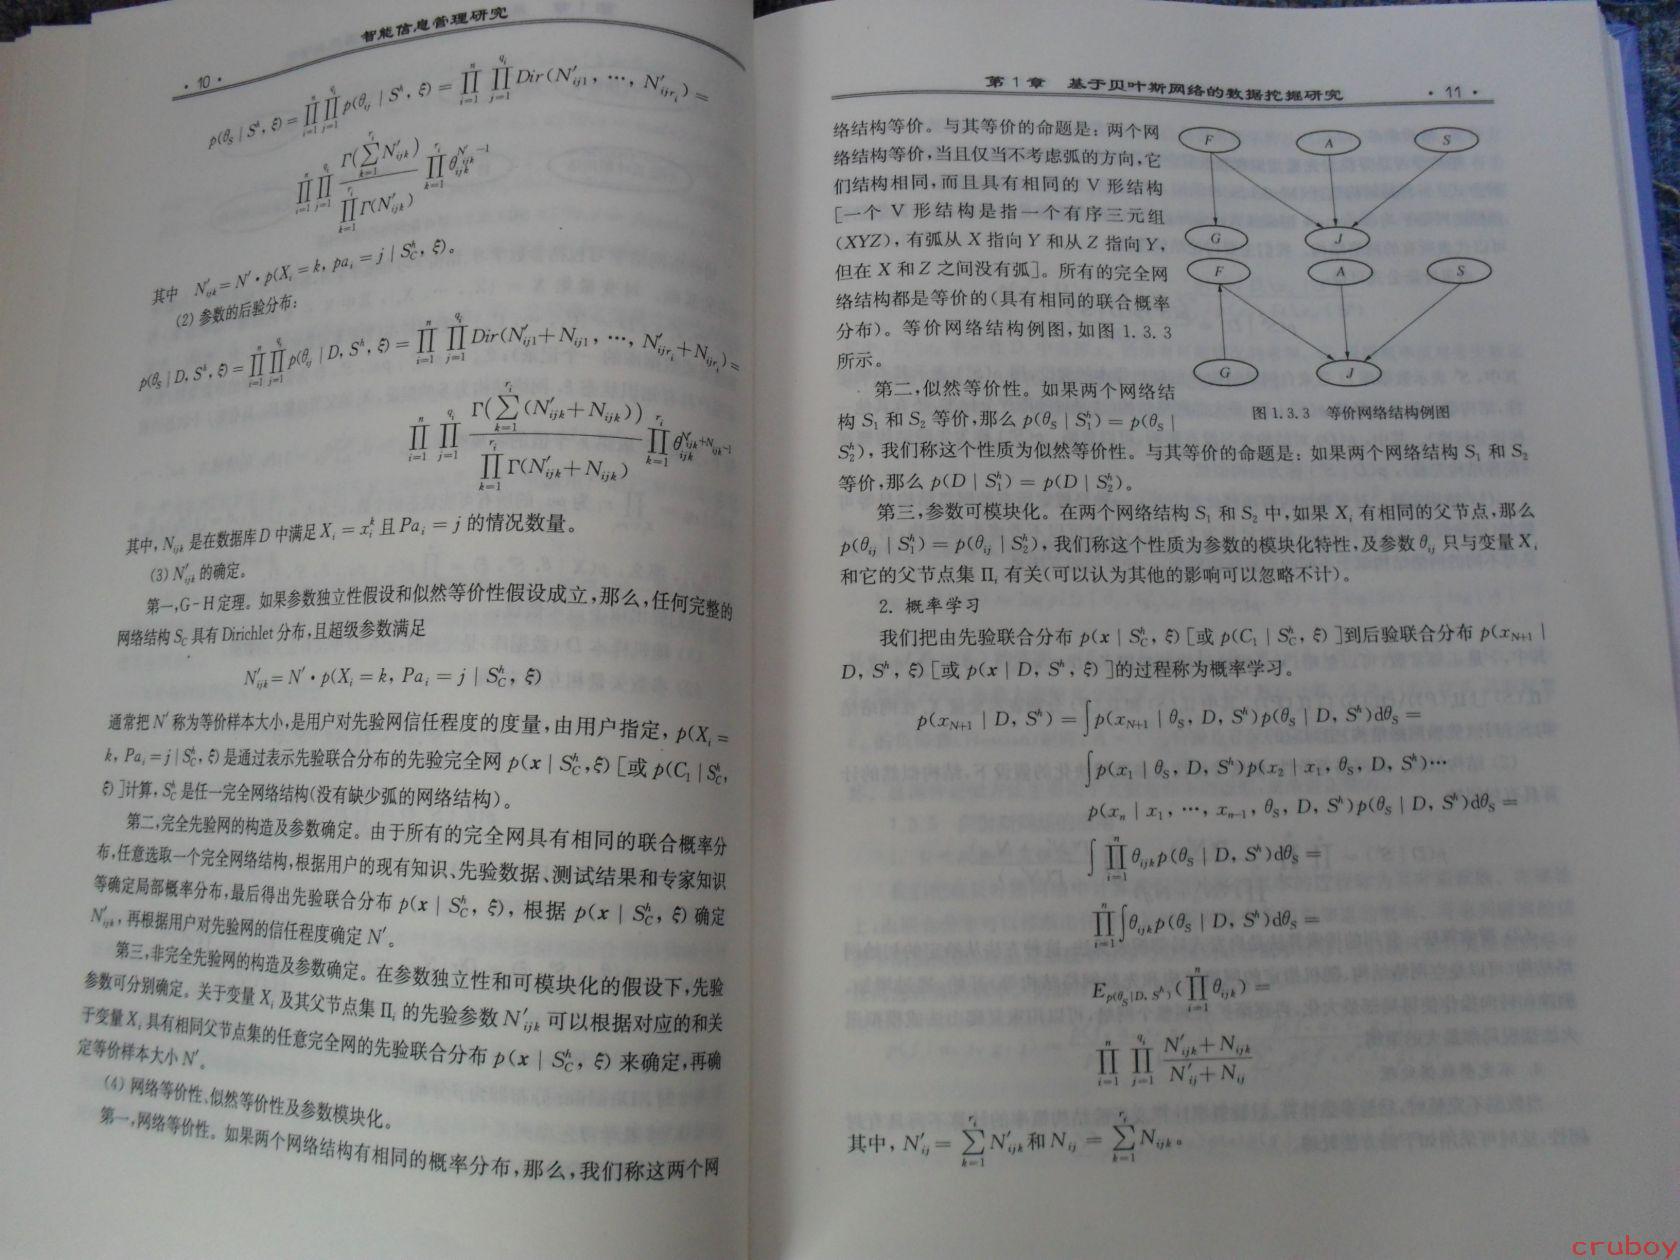 智能信息管理研究
· 10 ·
p(θ_S | S^h, ξ) = ∏_{i=1}^{n} ∏_{j=1}^{q_i} p(θ_ij | S^h, ξ) = ∏_{i=1}^{n} ∏_{j=1}^{q_i} Dir(N′_ij1, …, N′_ijr_i) =
∏_{i=1}^{n} ∏_{j=1}^{q_i} Γ(∑_{k=1}^{r_i} N′_ijk) / ∏_{k=1}^{r_i} Γ(N′_ijk) ∏_{k=1}^{r_i} θ_ijk^{N′_ijk−1}
其中 N′_ijk = N′ · p(X_i = k, pa_i = j | S_C^h, ξ)。
(2) 参数的后验分布:
p(θ_S | D, S^h, ξ) = ∏_{i=1}^{n} ∏_{j=1}^{q_i} p(θ_ij | D, S^h, ξ) = ∏_{i=1}^{n} ∏_{j=1}^{q_i} Dir(N′_ij1 + N_ij1, …, N′_ijr_i + N_ijr_i) =
∏_{i=1}^{n} ∏_{j=1}^{q_i} Γ(∑_{k=1}^{r_i} (N′_ijk + N_ijk)) / ∏_{k=1}^{r_i} Γ(N′_ijk + N_ijk) ∏_{k=1}^{r_i} θ_ijk^{N′_ijk+N_ijk−1}
其中, N_ijk 是在数据库 D 中满足 X_i = x_i^k 且 Pa_i = j 的情况数量。
(3) N′_ijk 的确定。
第一, G-H 定理。如果参数独立性假设和似然等价性假设成立, 那么, 任何完整的
网络结构 S_C 具有 Dirichlet 分布, 且超级参数满足
N′_ijk = N′ · p(X_i = k, Pa_i = j | S_C^h, ξ)
通常把 N′ 称为等价样本大小, 是用户对先验网信任程度的度量, 由用户指定, p(X_i =
k, Pa_i = j | S_C^h, ξ) 是通过表示先验联合分布的先验完全网 p(x | S_C^h, ξ) [或 p(C_1 | S_C^h,
ξ) ]计算, S_C^h 是任一完全网络结构(没有缺少弧的网络结构)。
第二, 完全先验网的构造及参数确定。由于所有的完全网具有相同的联合概率分
布, 任意选取一个完全网络结构, 根据用户的现有知识、先验数据、测试结果和专家知识
等确定局部概率分布, 最后得出先验联合分布 p(x | S_C^h, ξ), 根据 p(x | S_C^h, ξ) 确定
N′_ijk, 再根据用户对先验网的信任程度确定 N′。
第三, 非完全先验网的构造及参数确定。在参数独立性和可模块化的假设下, 先验
参数可分别确定。关于变量 X_i 及其父节点集 Π_i 的先验参数 N′_ijk 可以根据对应的和关
于变量 X_i 具有相同父节点集的任意完全网的先验联合分布 p(x | S_C^h, ξ) 来确定, 再确
定等价样本大小 N′。
(4) 网络等价性、似然等价性及参数模块化。
第一, 网络等价性。如果两个网络结构有相同的概率分布, 那么, 我们称这两个网
第 1 章 基于贝叶斯网络的数据挖掘研究
· 11 ·
络结构等价。与其等价的命题是: 两个网
络结构等价, 当且仅当不考虑弧的方向, 它
们结构相同, 而且具有相同的 V 形结构
[一个 V 形结构是指一个有序三元组
(XYZ), 有弧从 X 指向 Y 和从 Z 指向 Y,
但在 X 和 Z 之间没有弧]。所有的完全网
络结构都是等价的(具有相同的联合概率
分布)。等价网络结构例图, 如图 1.3.3
所示。
F A S
G J
F A S
G J
图 1.3.3 等价网络结构例图
第二, 似然等价性。如果两个网络结
构 S_1 和 S_2 等价, 那么 p(θ_S | S_1^h) = p(θ_S |
S_2^h), 我们称这个性质为似然等价性。与其等价的命题是: 如果两个网络结构 S_1 和 S_2
等价, 那么 p(D | S_1^h) = p(D | S_2^h)。
第三, 参数可模块化。在两个网络结构 S_1 和 S_2 中, 如果 X_i 有相同的父节点, 那么
p(θ_ij | S_1^h) = p(θ_ij | S_2^h), 我们称这个性质为参数的模块化特性, 及参数 θ_ij 只与变量 X_i
和它的父节点集 Π_i 有关(可以认为其他的影响可以忽略不计)。
2. 概率学习
我们把由先验联合分布 p(x | S_C^h, ξ) [或 p(C_1 | S_C^h, ξ) ]到后验联合分布 p(x_{N+1} |
D, S^h, ξ) [或 p(x | D, S^h, ξ) ]的过程称为概率学习。
p(x_{N+1} | D, S^h) = ∫p(x_{N+1} | θ_S, D, S^h)p(θ_S | D, S^h)dθ_S =
∫p(x_1 | θ_S, D, S^h)p(x_2 | x_1, θ_S, D, S^h)…
p(x_n | x_1, …, x_{n−1}, θ_S, D, S^h)p(θ_S | D, S^h)dθ_S =
∫ ∏_{i=1}^{n} θ_ijk p(θ_S | D, S^h)dθ_S =
∏_{i=1}^{n} ∫θ_ijk p(θ_S | D, S^h)dθ_S =
E_{p(θ_S|D, S^h)}(∏_{i=1}^{n} θ_ijk) =
∏_{i=1}^{n} ∏_{j=1}^{q_i} (N′_ijk + N_ijk) / (N′_ij + N_ij)
其中, N′_ij = ∑_{k=1}^{r_i} N′_ijk 和 N_ij = ∑_{k=1}^{r_i} N_ijk。
cruboy